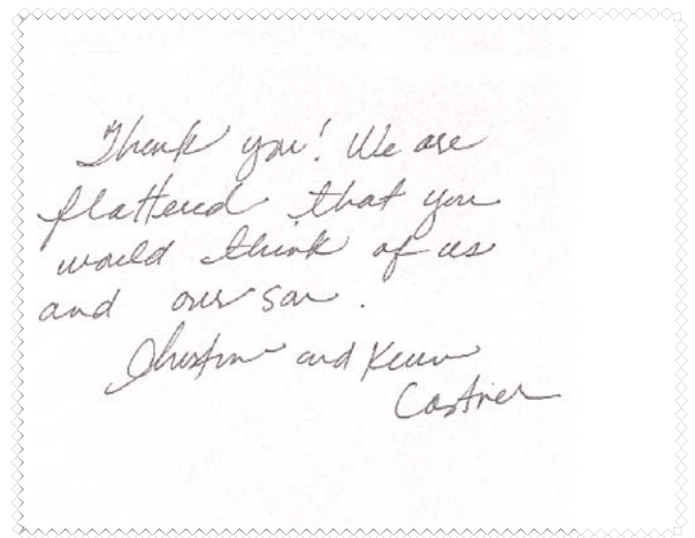 Thank you! We are
flattered that you
would think of us
and our son.
and
Castner